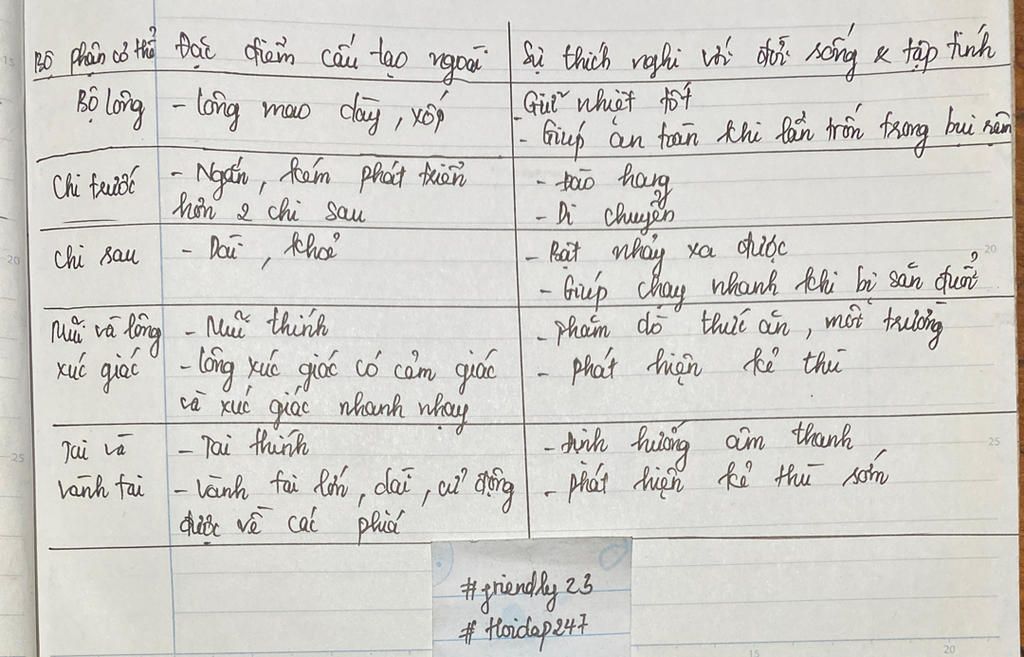 Bộ phận cơ thể Đặc điểm cấu tạo ngoài Sự thích nghi với đời sống & tập tính
Bộ lông - lông mao dày, xốp Giữ nhiệt tốt
- Giúp ẩn toàn khi lẩn trốn trong bụi rậm
Chi trước - Ngắn, kém phát triển - Đào hang
hơn 2 chi sau - Di chuyển
Chi sau - Dài, khoẻ - Bật nhảy xa được
- Giúp chạy nhanh khi bị săn đuổi
Mũi và lông - Mũi thính - phăm dò thức ăn, môi trường
xúc giác - lông xúc giác có cảm giác - phát hiện kẻ thù
và xúc giác nhanh nhạy
Tai và - Tai thính - định hướng âm thanh
vành tai - vành tai lớn, dài, cử động - phát hiện kẻ thù sớm
được về các phía
#friendly23
#Hoidap247
15
20
20
25
25
15
20